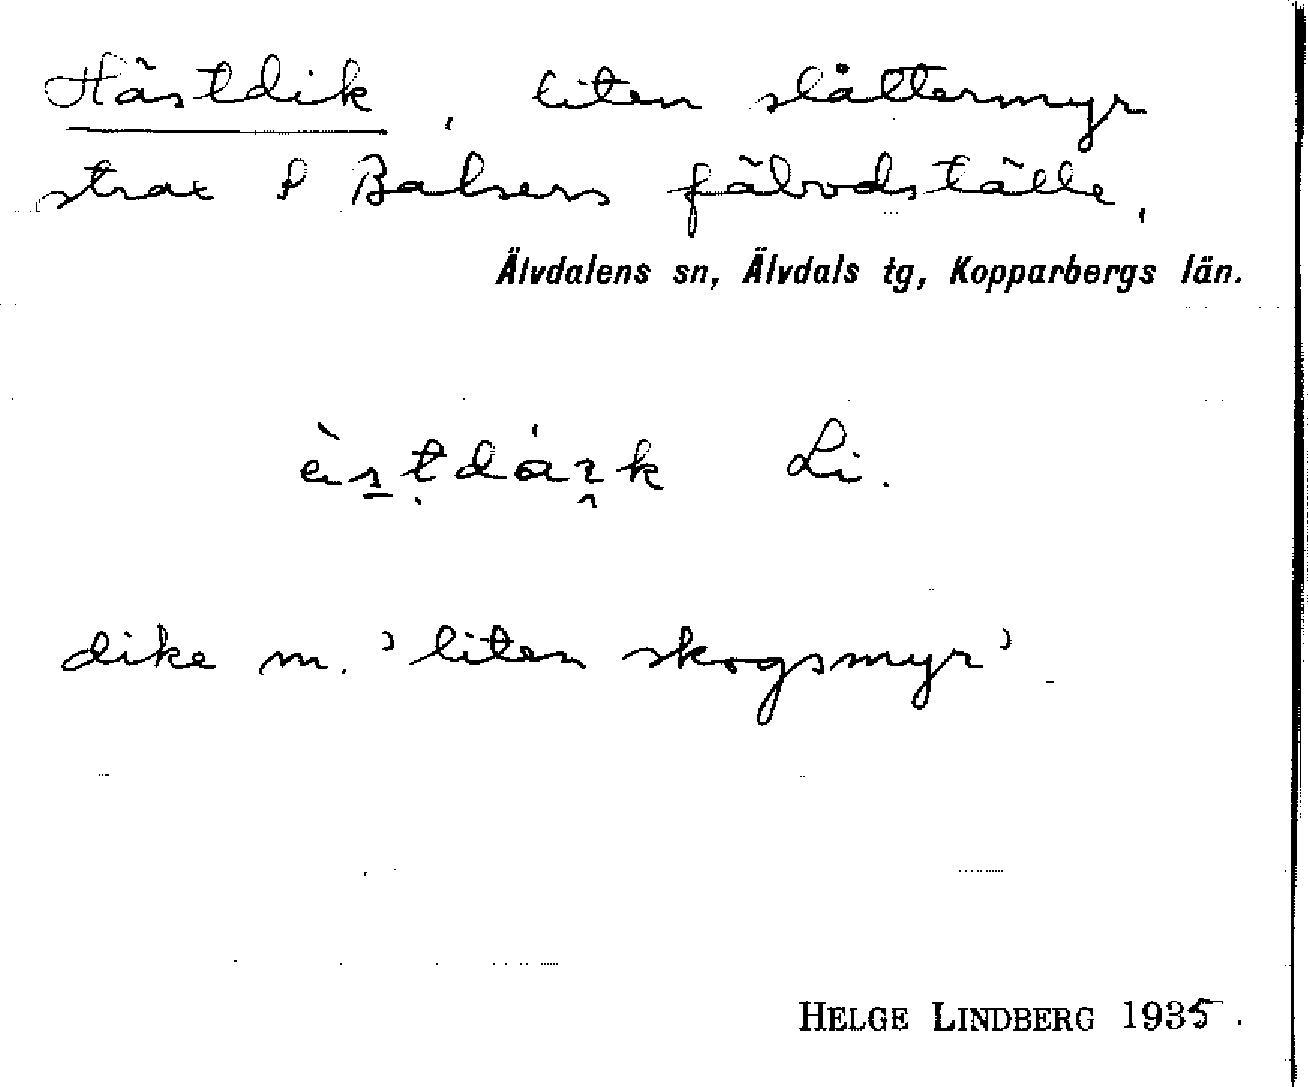 Hästdik, liten slåttermyr
strax S Balsers fäbodställe.
Älvdalens sn, Älvdals tg, Kopparbergs län.
Li.
dike m. 'liten skogsmyr'
HELGE LINDBERG 1935.